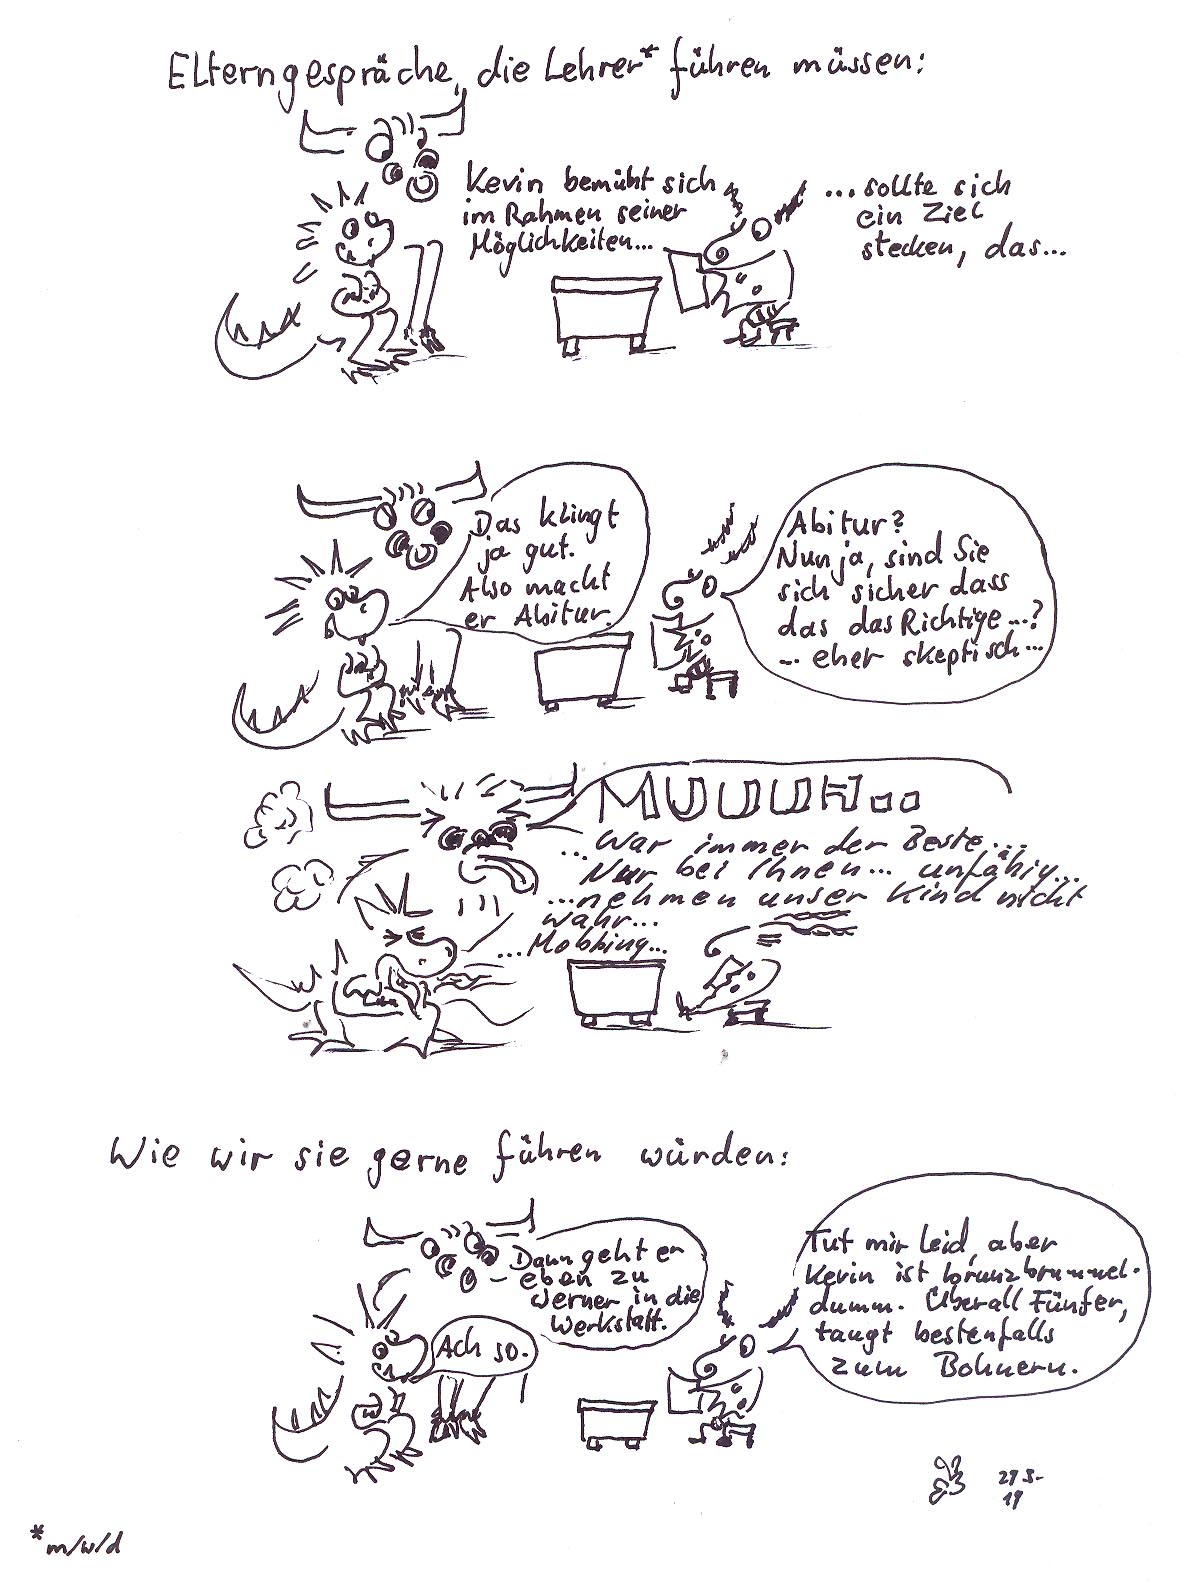 Elterngespräche, die Lehrer* führen müssen:
Kevin bemüht sich
im Rahmen seiner
Möglichkeiten...
...sollte sich
ein Ziel
stecken, das...
Das klingt
ja gut.
Also macht
er Abitur.
Abitur?
Nun ja, sind Sie
sich sicher dass
das das Richtige...?
... eher skeptisch...
MUUUH..
...War immer der Beste...
Nur bei Ihnen... unfähig...
...nehmen unser Kind nicht
wahr...
...Mobbing...
Wie wir sie gerne führen würden:
Tut mir Leid, aber
Kevin ist brunzbrummel-
dumm. Überall Fünfer,
taugt bestenfalls
zum Bohnern.
Dann geht er
eben zu
Werner in die
Werkstatt.
Ach so.
19
*m/w/d